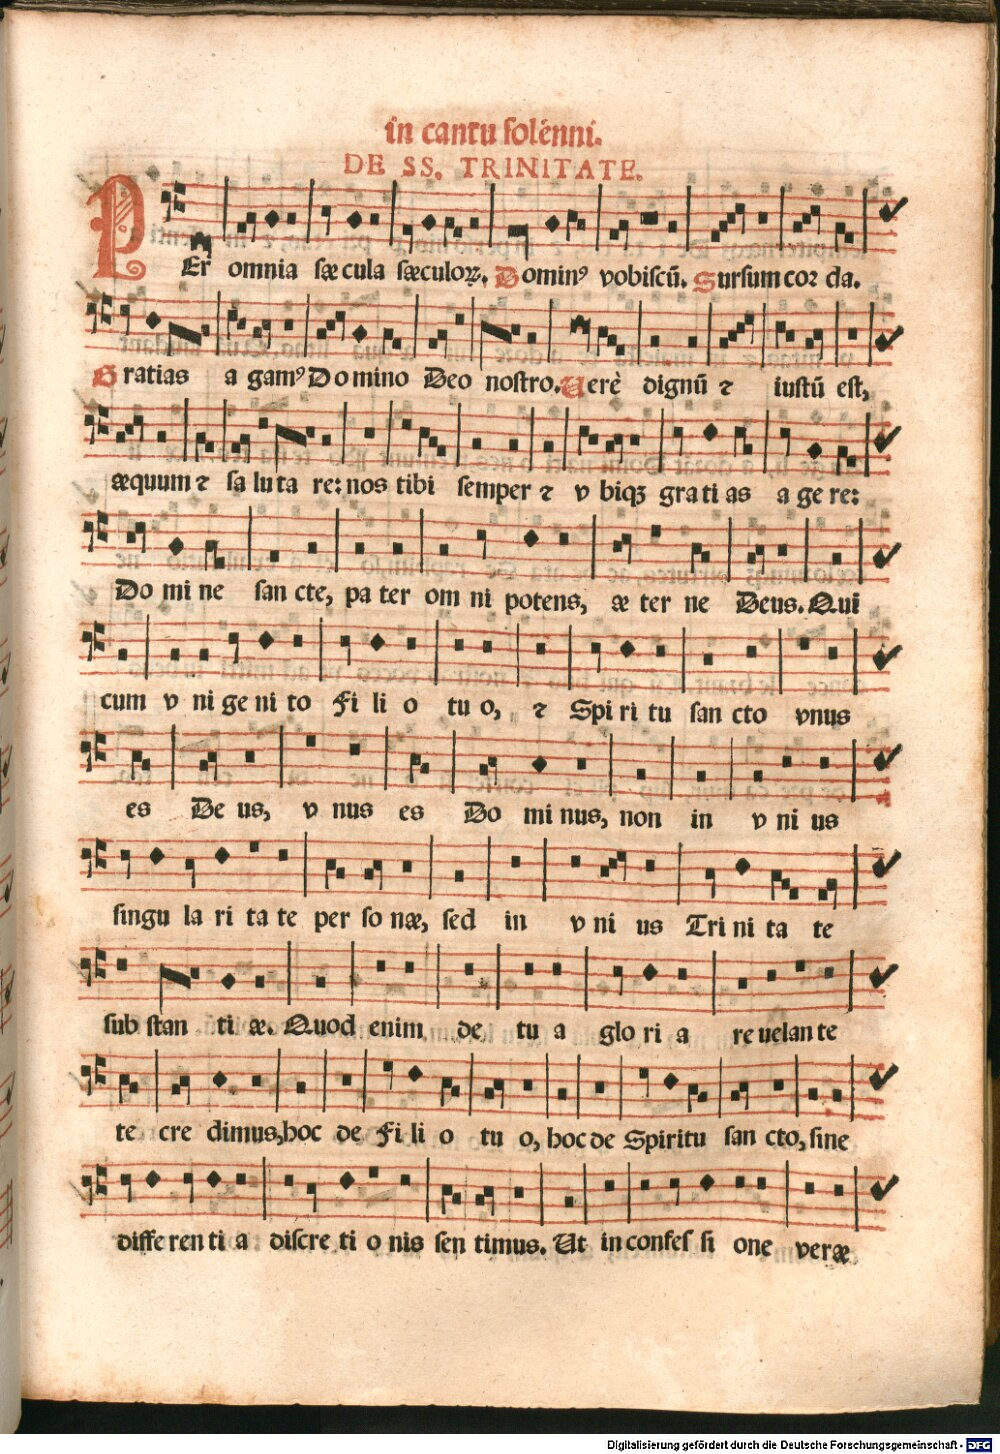 in cantu solénni.
DE SS. TRINITATE.
PEr omnia sæcula sæculoꝝ. Dominꝰ vobiscū. Sursum cor da.
Gratias a gamꝰ Do mino Deo nostro. Uerè dignū ⁊ iustū est,
æquum ⁊ sa lu ta re: nos tibi semper ⁊ v biqꝫ gra ti as a ge re:
Do mi ne san cte, pa ter om ni potens, æ ter ne Deus. Qui
cum v ni ge ni to Fi li o tu o, ⁊ Spi ri tu san cto vnus
es De us, v nus es Do mi nus, non in v ni us
singu la ri ta te per so næ, sed in v ni us Tri ni ta te
sub stan ti æ. Quod enim de tu a glo ri a re uelan te
te cre dimus, hoc de Fi li o tu o, hoc de Spiritu san cto, sine
diffe ren ti a discre ti o nis sen timus. Ut in confes si one veræ
Digitalisierung gefördert durch die Deutsche Forschungsgemeinschaft - DFG